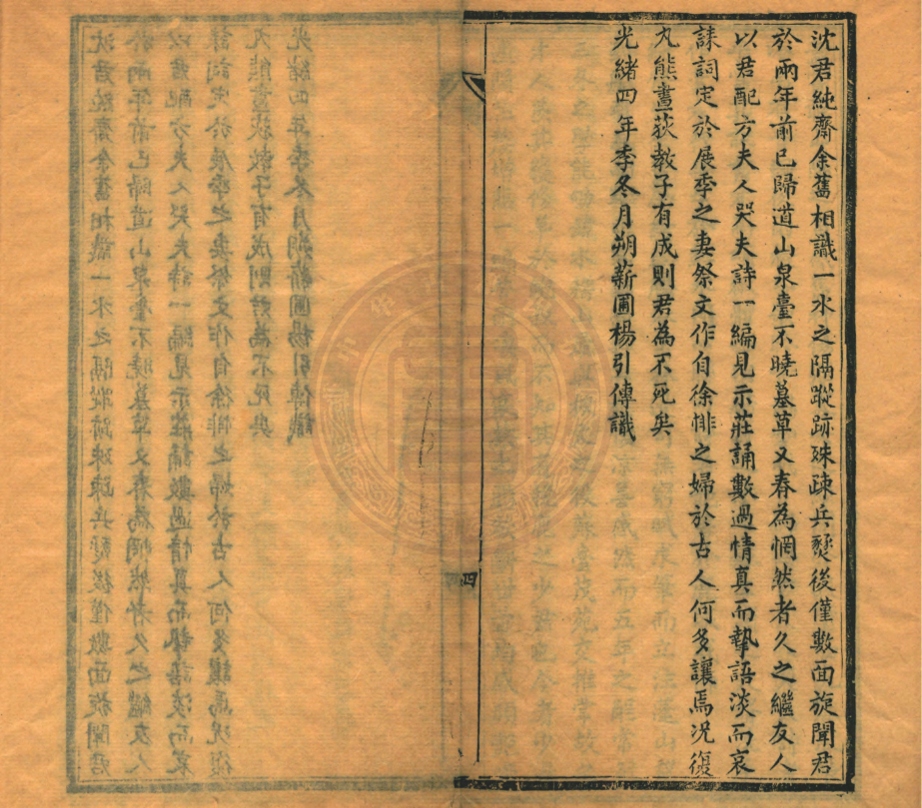 沈君純齋余舊相識一水之隔蹤跡殊疎兵燹後僅數面旋聞君
於兩年前已歸道山泉臺不曉墓草又春為惘然者久之繼友人
以君配方夫人哭夫詩一編見示莊誦數過情真而摯語淡而哀
誄詞定於展季之妻祭文作自徐悱之婦於古人何多讓焉况復
丸熊畫荻教子有成則君為不死矣
光緒四年季冬月朔薪圃楊引傳識
四